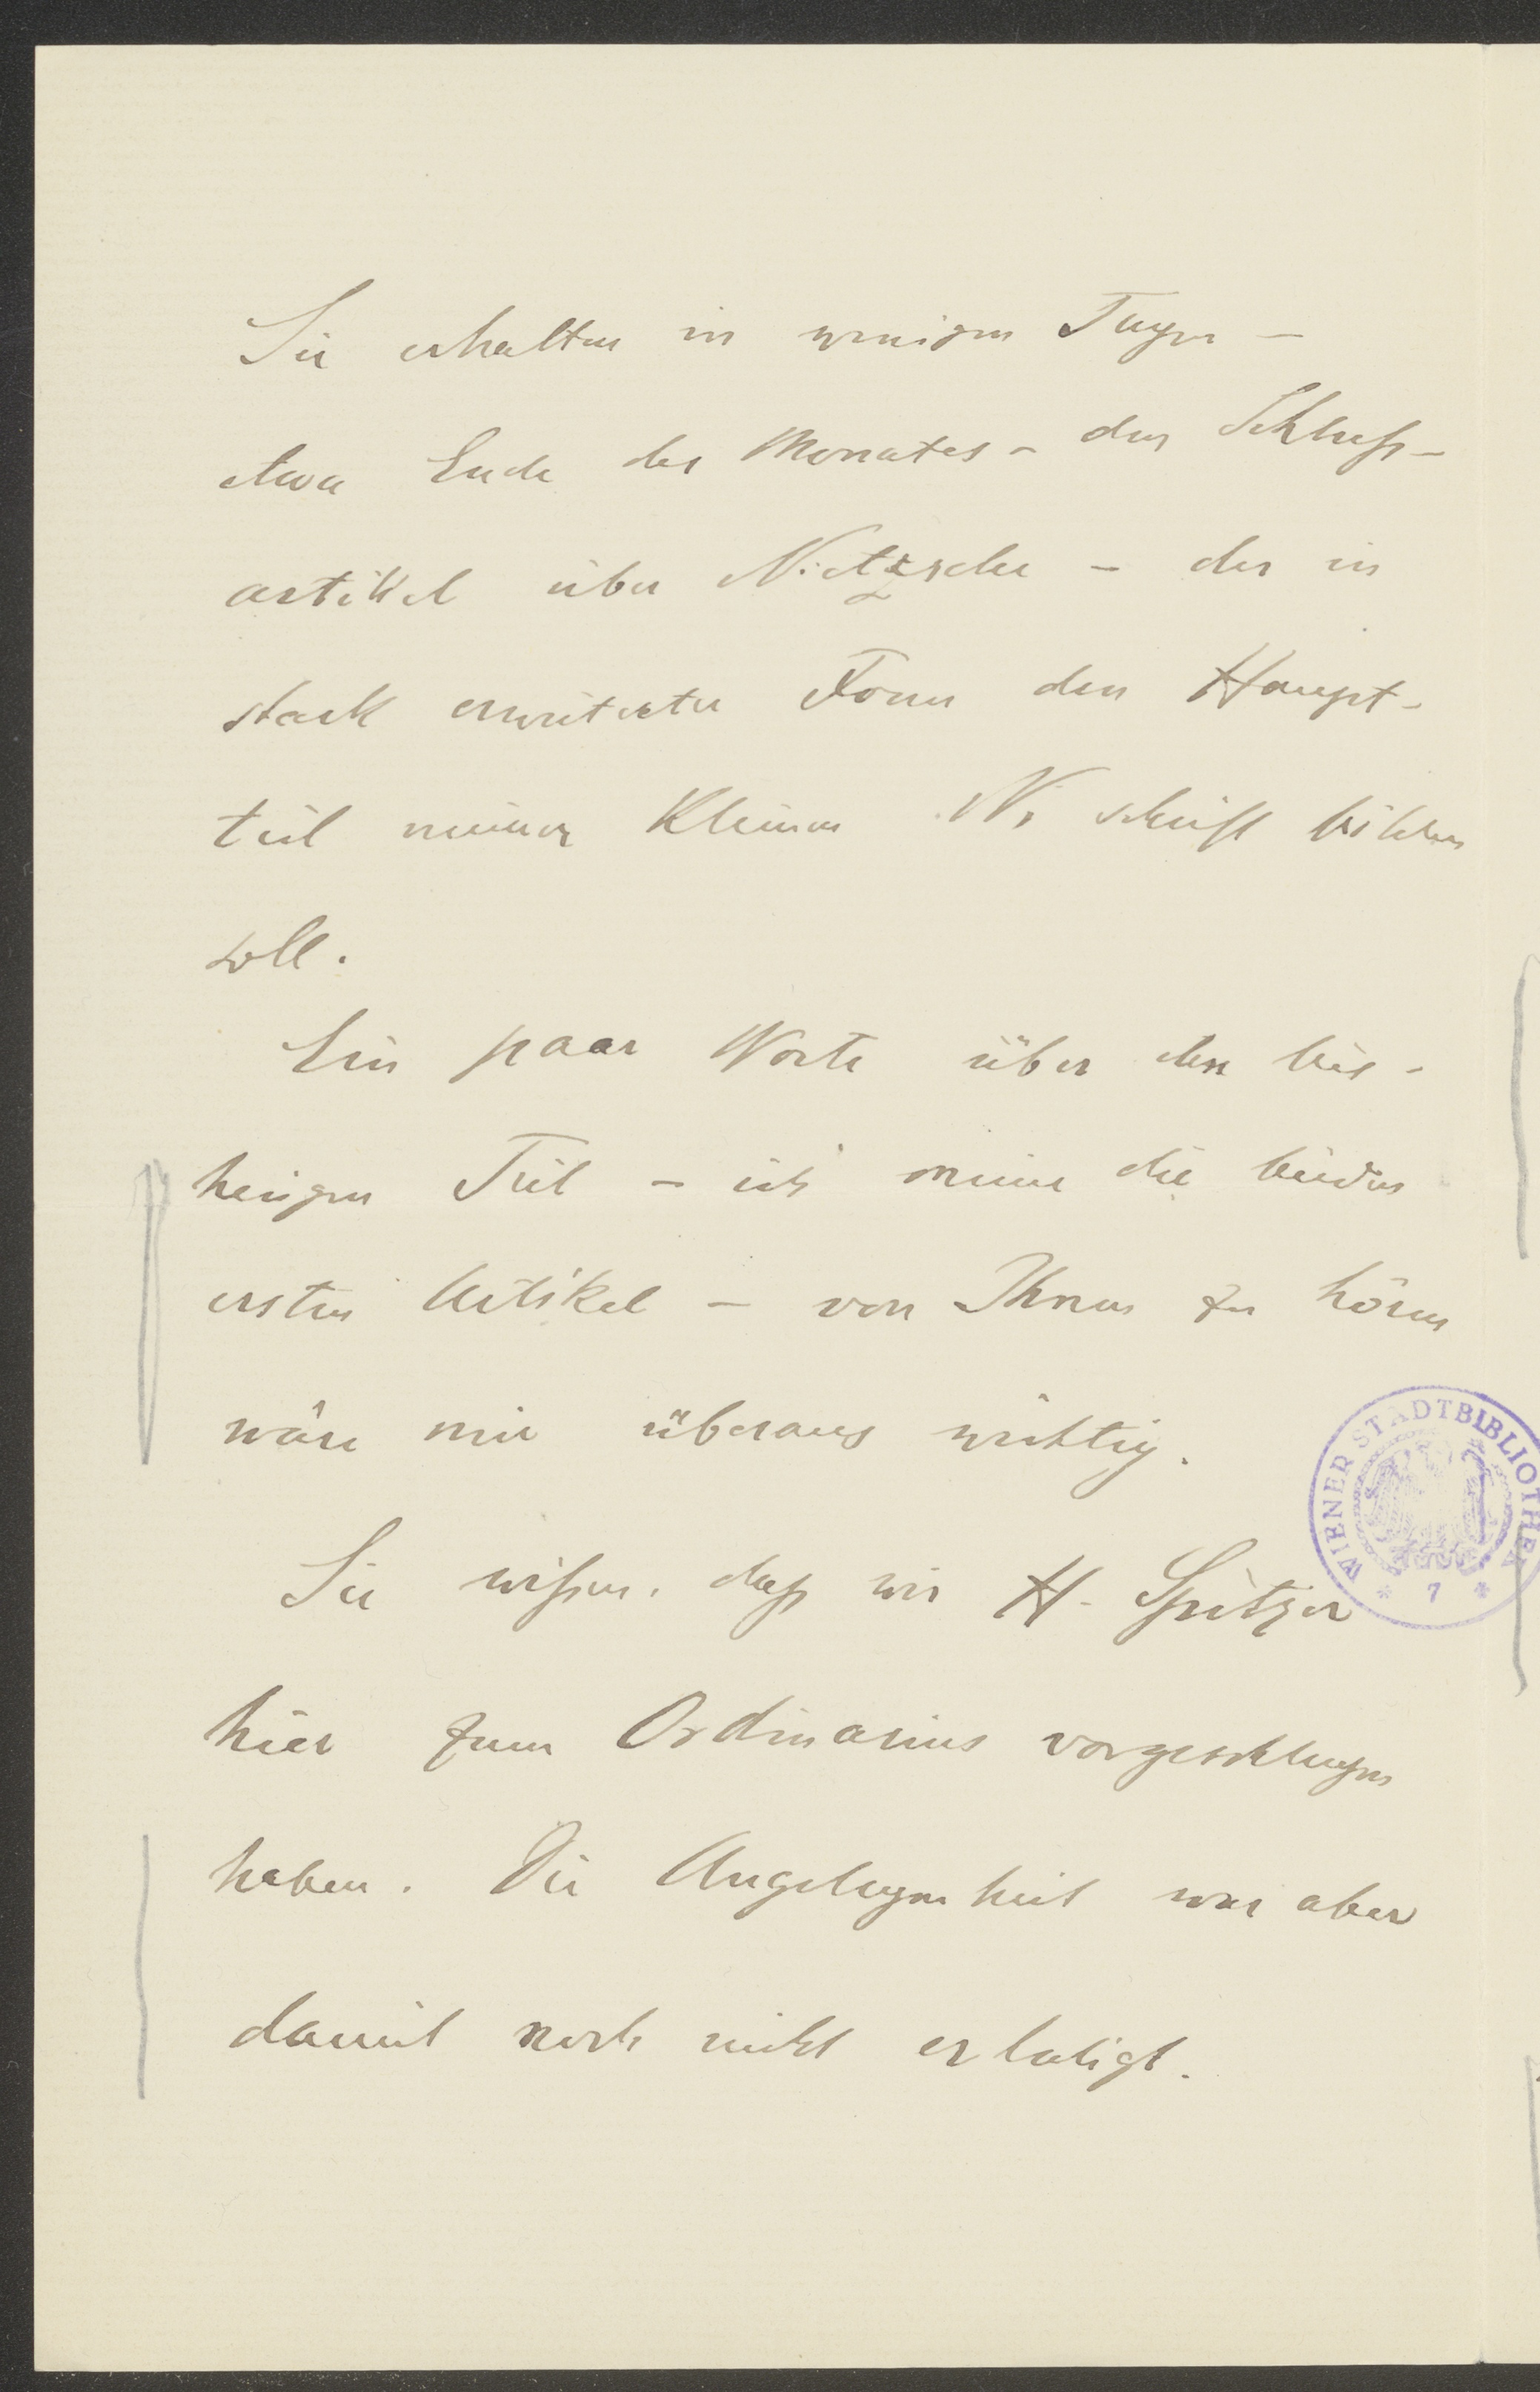 Sie erhalten in wenigen Tagen –
etwa Ende des Monates – den Schluß-
artikel über Nietzsche – der in
stark erweiterter Form den Haupt-
teil meiner kleinen N. schrift bilden
soll.
Ein paar Worte über den bis-
herigen Teil – ich meine die beiden
ersten Artikel – von Ihnen zu hören
wäre mir überaus wichtig.
Sie wißen, daß wir H. Spitzer
hier zum Ordinarius vorgeschlagen
haben. Die Angelegenheit war aber
damit noch nicht erledigt.
WIENER STADTBIBLIOTHEK
* 7 *